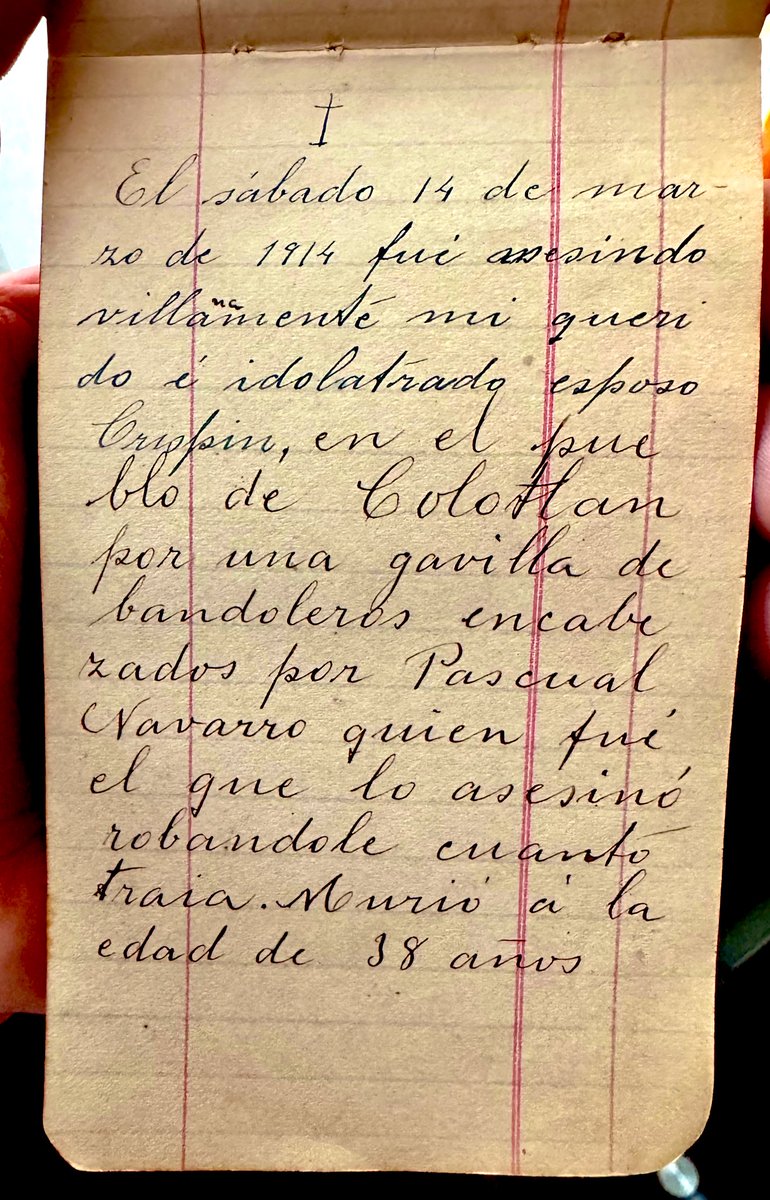 †
El sábado 14 de mar-
zo de 1914 fué asesindo
villanamente mi queri
do é idolatrado esposo
Crispin, en el pue
blo de Colotlan
por una gavilla de
bandoleros encabe
zados por Pascual
Navarro quien fué
el que lo asesinó
robandole cuanto
traia. Murió á la
edad de 38 años